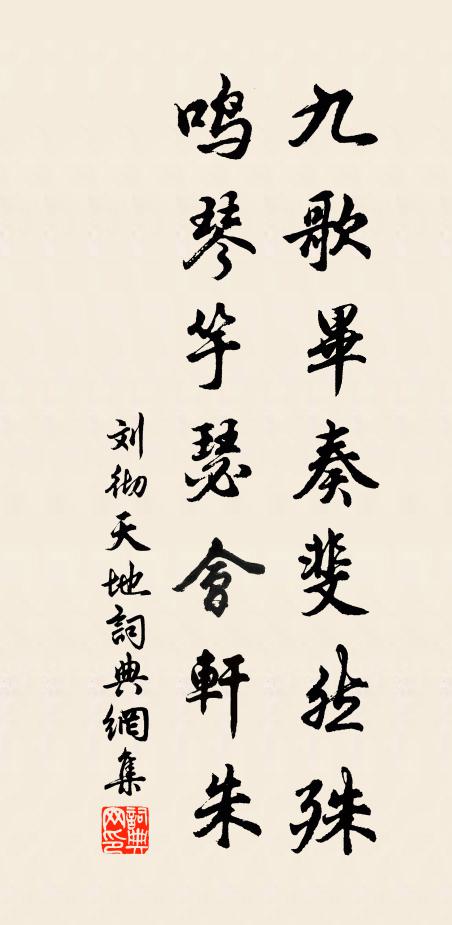 九歌畢奏斐然殊
鸣琴竽瑟會軒朱
刘彻天地詞典網集
詞典网印